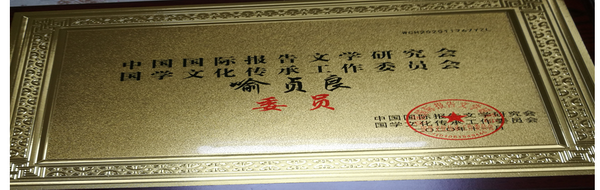 中国国际报告文学研究会
国学文化传承工作委员会
喻贞良
委员
中国国际报告文学研究会
国学文化传承工作委员会